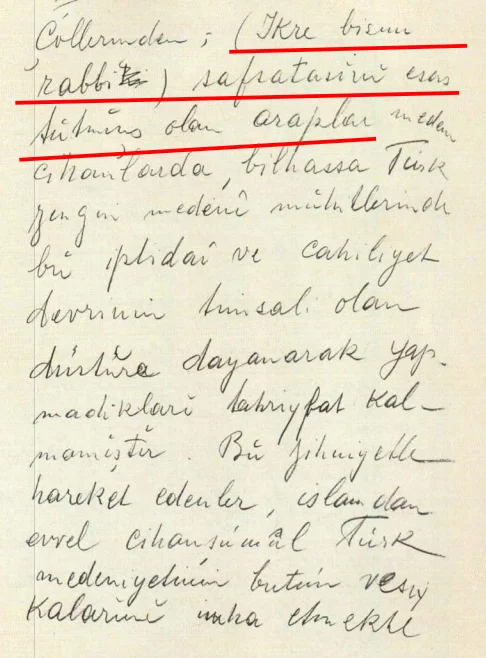 Çöllerinden; (Ikre bismi
rabbike) safsatasını esas
tutmuş olan araplar meden
cihanlarda, bilhassa Türk
zengin medenî muhitlerinde
bu iptidaî ve cahiliyet
devrinin timsali olan
düstüre dayanarak yap-
madikları tahriyfat kal-
mamıştır. Bu zihniyetle
hareket edenler, islamdan
evvel cihanşümûl Türk
medeniyetinin butün vesy
kalarını imha etmekte